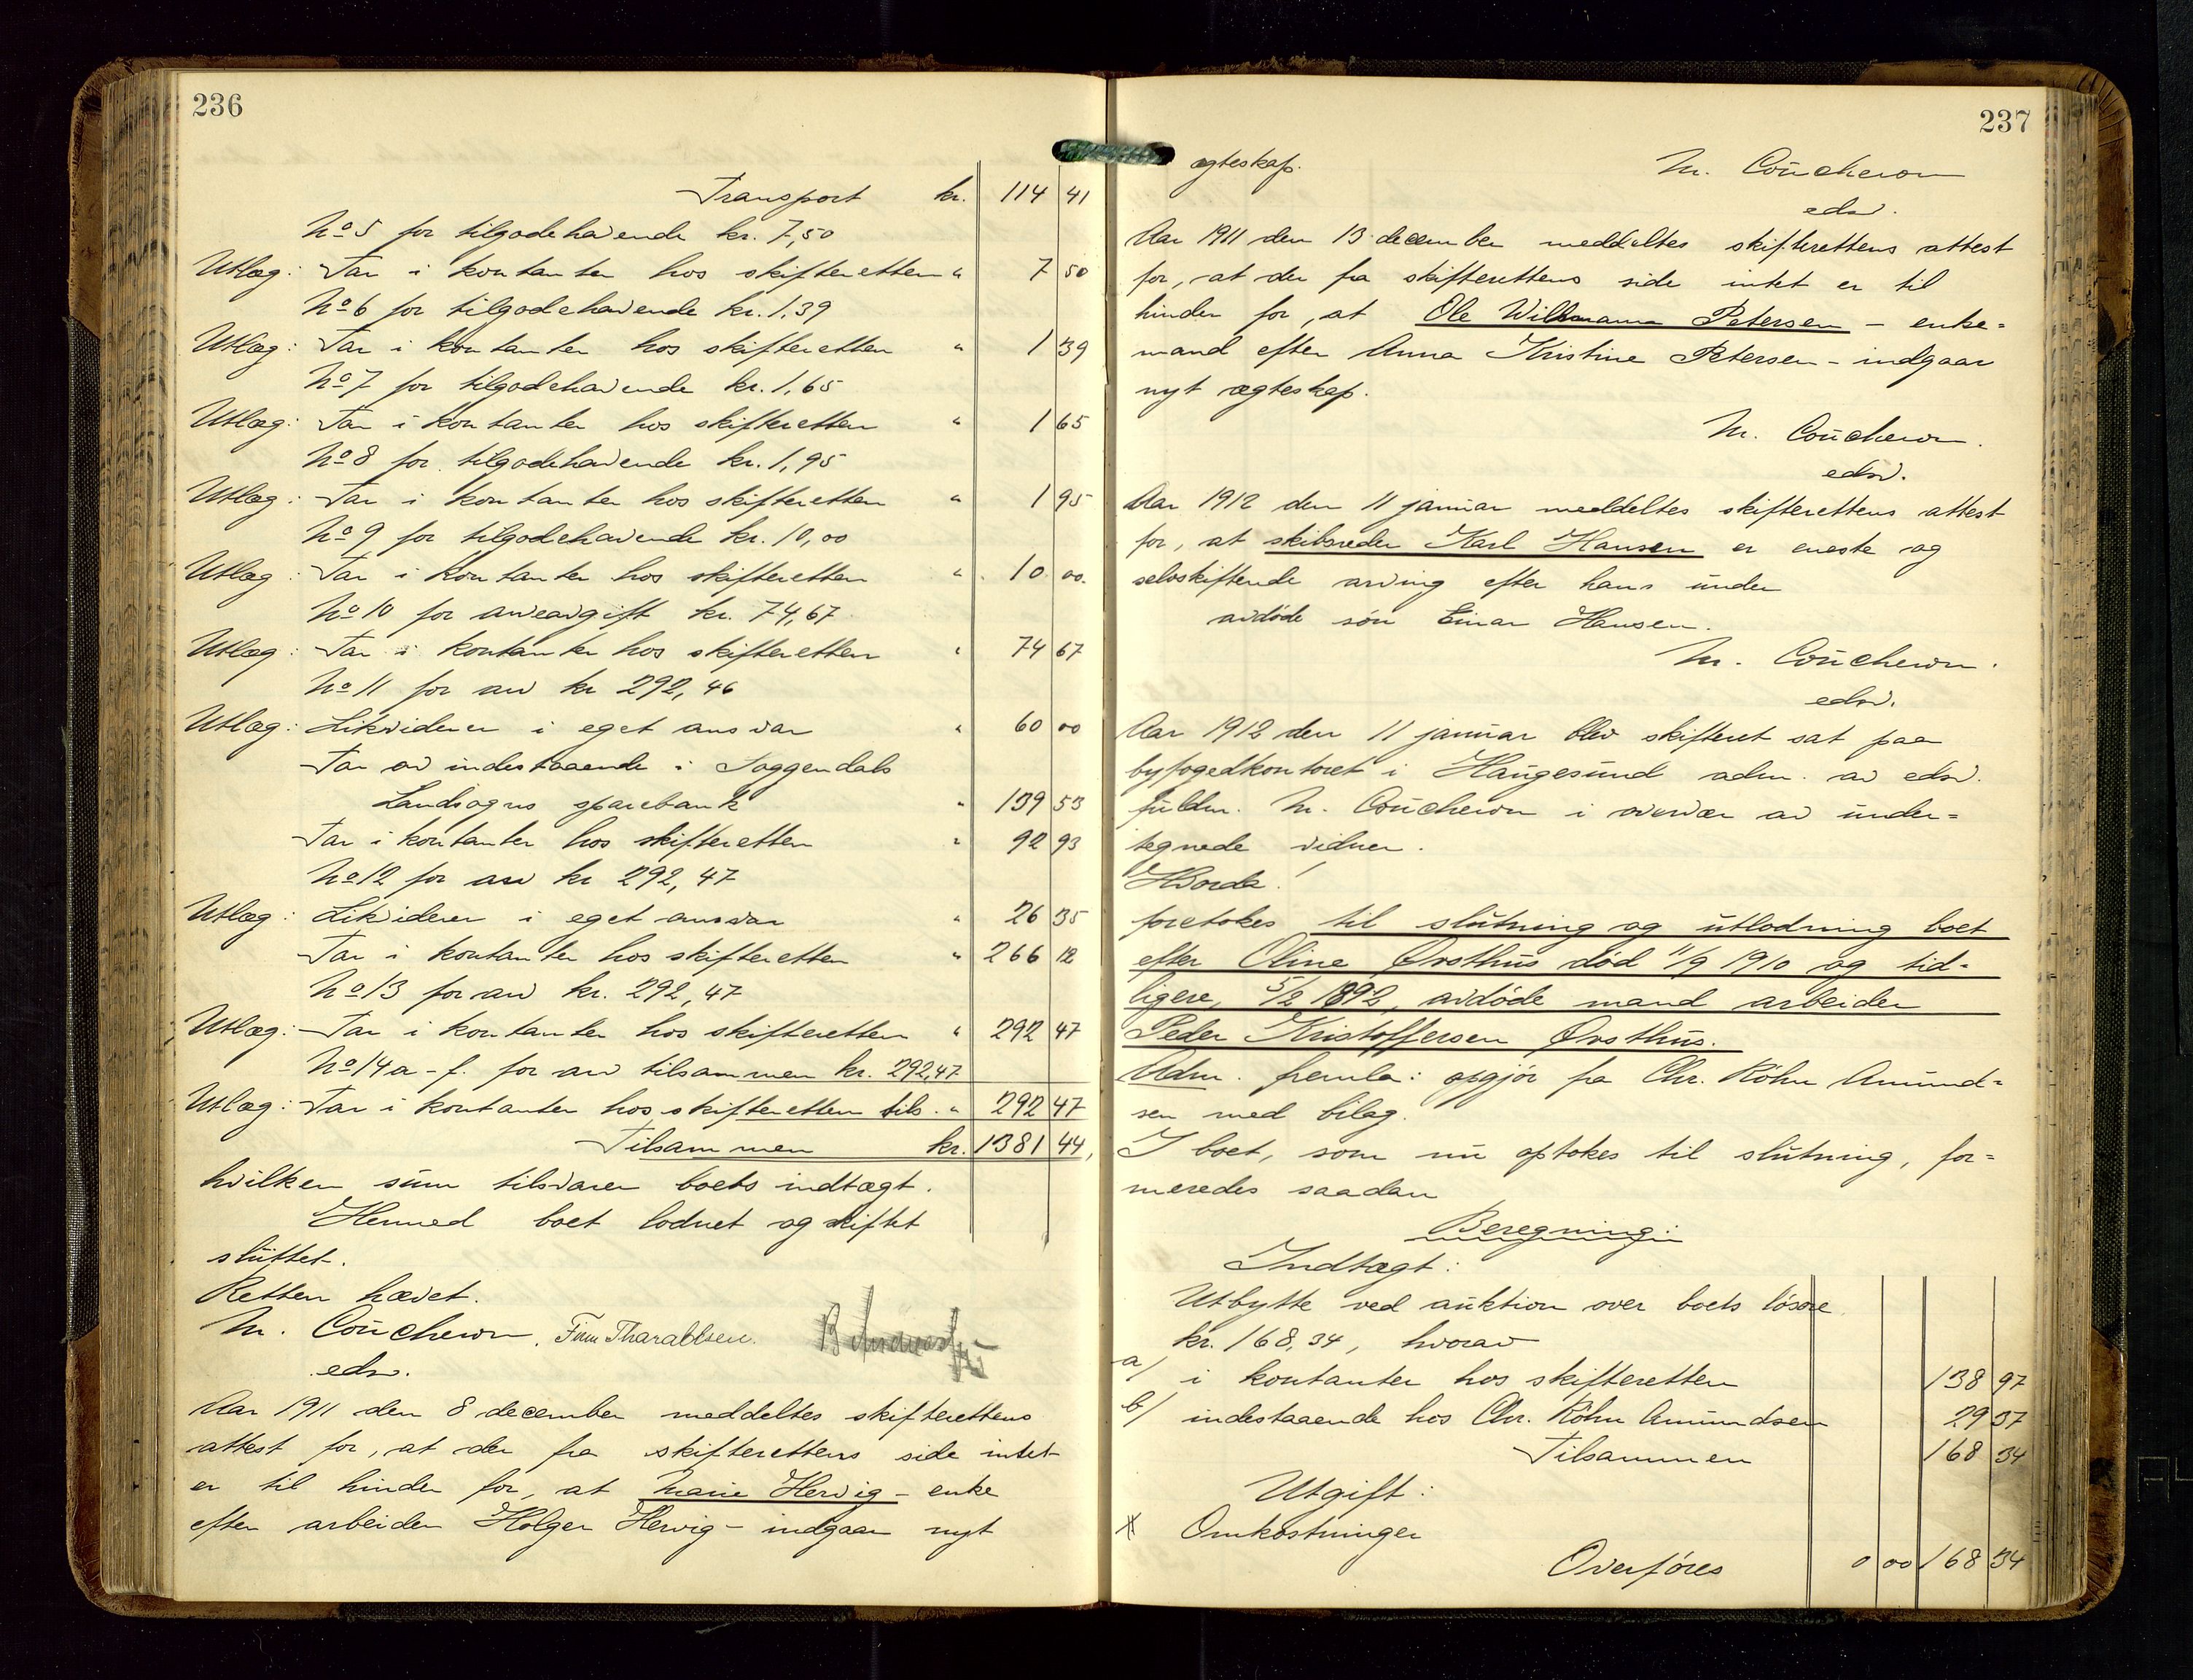 236
Transport kr. 114 41
No 5 for tilgodehavende kr. 7,50
Utlæg: Tar i kontanter hos skifteretten " 7 50
No 6 for tilgodehavende kr. 1.39
Utlæg: Tar i kontanter hos skifteretten " 1 39
No 7 for tilgodehavende kr. 1,65
Utlæg: Tar i kontanter hos skifteretten " 1 65
No 8 for tilgodehavende kr. 1,95
Utlæg: Tar i kontanter hos skifteretten " 1 95
No 9 for tilgodehavende kr. 10,00
Utlæg: Tar i kontanter hos skifteretten " 10 00.
No 10 for arveavgift kr. 74,67
Utlæg: Tar i kontanter hos skifteretten " 74 67
No 11 for arv kr 292,46
Utlæg: Likviderer i eget ansvar " 60 00
Tar av indestaaende i Soggendals
Landsogns sparebank " 139 53
Tar i kontanter hos skifteretten " 92 93
No 12 for arv kr 292,47
Utlæg: Likviderer i eget ansvar " 26 35
Tar i kontanter hos skifteretten " 266 12
No 13 for arv kr. 292,47
Utlæg: Tar i kontanter hos skifteretten " 292 47
No 14 a - f. for arv tilsammen kr. 292,47
Utlæg: Tar i kontanter hos skifteretten tils. " 292 47
Tilsammen kr. 1381 44,
hvilken sum tilsvarer boets indtægt.
Hermed boet lodnet og skiftet
sluttet.
Retten hævet.
M. Coucheron. Finn Tharaldsen.
edsv.
Aar 1911 den 8 december meddeltes skifterettens
attest for, at der fra skifterettens side intet
er til hinder for, at Marie Hervig - enke
efter arbeider Holger Hervig - indgaar nyt
237
ægteskap. M. Coucheron
edsv.
Aar 1911 den 13 december meddeltes skifterettens attest
for, at der fra skifterettens side intet er til
hinder for, at Ole Willumann Petersen - enke=
mand efter Anna Kristine Petersen - indgaar
nyt ægteskap.
M. Coucheron.
edsv.
Aar 1912 den 11 januar meddeltes skifterettens attest
for, at skibsreder Karl Hansen er eneste og
selvskiftende arving efter hans under
avdøde søn Einar Hansen.
M. Coucheron.
edsv.
Aar 1912 den 11 januar blev skifteret sat paa
byfogedkontoret i Haugesund adm. av edsv.
fuldm. M. Coucheron i overvær av under=
tegnede vidner.
Hvorda!
foretokes til slutning og utlodning boet
efter Oline Ørsthus død 11/9 1910 og tid=
ligere, 5/2 1892, avdøde mand arbeider
Peder Kristoffersen Ørsthus.
Adm. fremla: opgjør fra Chr. Köhn Amund=
sen med bilag.
I boet, som nu optokes til slutning, for=
meredes saadan
Beregning:
Indtægt:
Utbytte ved auktion over boets løsøre
kr. 168,34, hvorav
a/ i kontanter hos skifteretten 138 97
b/ indestaaende hos Chr. Köhn Amundsen 29 37
Tilsammen 168 34
Utgift:
Omkostninger
Overføres 0 00 168 34